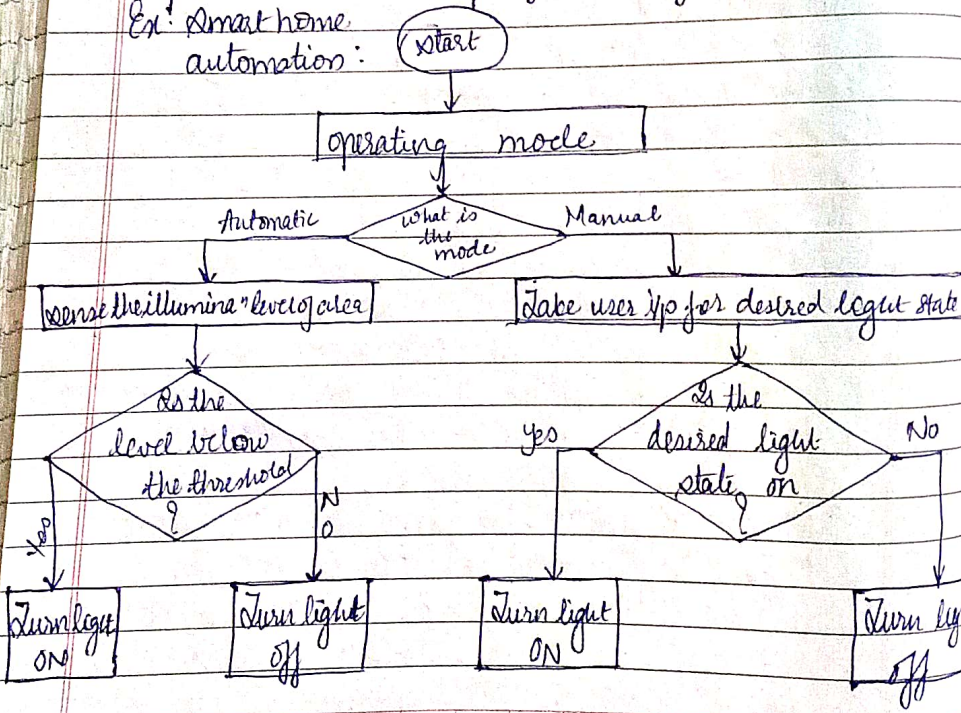 Ex: Smart home
automation:
start
operating mode
Automatic
what is
the
mode
Manual
sense the illumina" level of area
Take user i/p for desired light state
Is the
level below
the threshold
?
Yes
NO
Is the
desired light
state on
?
yes
No
Turn light
ON
Turn light
off
Turn light
ON
Turn lig
off